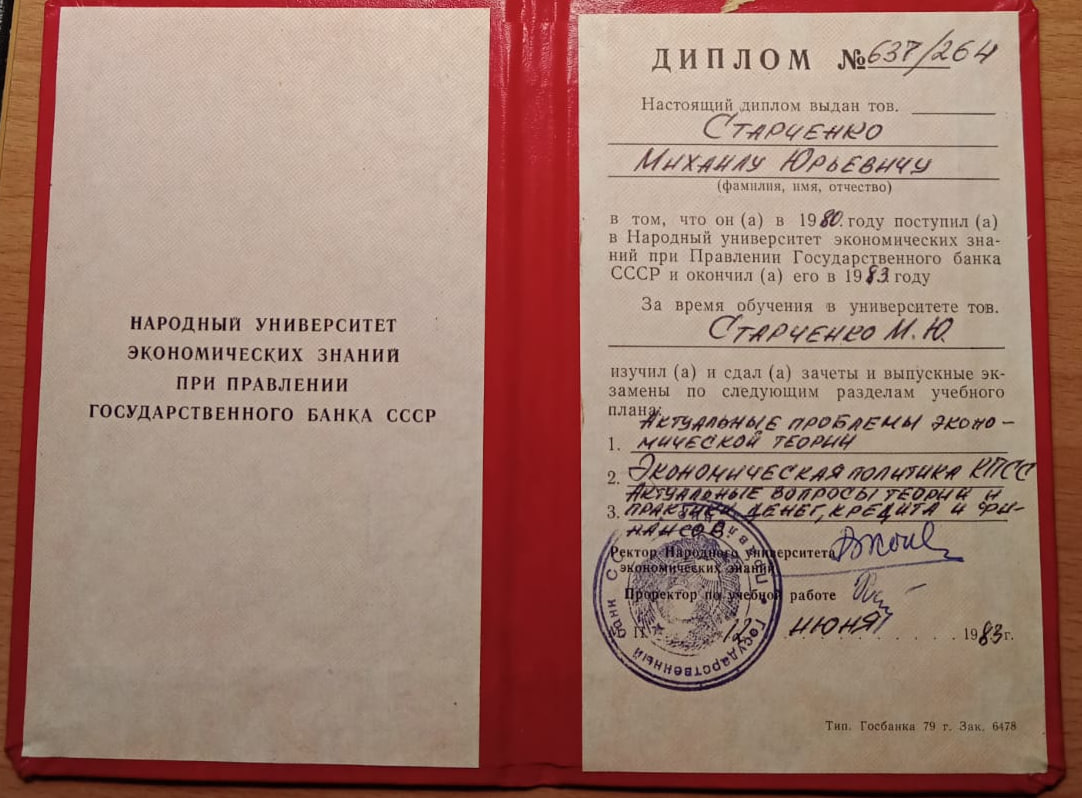 НАРОДНЫЙ УНИВЕРСИТЕТ
ЭКОНОМИЧЕСКИХ ЗНАНИЙ
ПРИ ПРАВЛЕНИИ
ГОСУДАРСТВЕННОГО БАНКА СССР
ДИПЛОМ № 637/264
Настоящий диплом выдан тов.
СТАРЧЕНКО
МИХАИЛУ ЮРЬЕВИЧУ
(фамилия, имя, отчество)
в том, что он (а) в 1980. году поступил (а)
в Народный университет экономических зна-
ний при Правлении Государственного банка
СССР и окончил (а) его в 1983 году
За время обучения в университете тов.
СТАРЧЕНКО М. Ю.
изучил (а) и сдал (а) зачеты и выпускные эк-
замены по следующим разделам учебного
плана:
АКТУАЛЬНЫЕ ПРОБЛЕМЫ ЭКОНО-
1. МИЧЕСКОЙ ТЕОРИИ
2. ЭКОНОМИЧЕСКАЯ ПОЛИТИКА КПСС
АКТУАЛЬНЫЕ ВОПРОСЫ ТЕОРИИ И
3. ПРАКТИКИ ДЕНЕГ, КРЕДИТА И ФИ-
НАНСОВ.
Ректор Народного университета
экономических знаний
Проректор по учебной работе
М. П. 12 ИЮНЯ 1983 г.
Государственный банк СССР
Тип. Госбанка 79 г. Зак. 6478